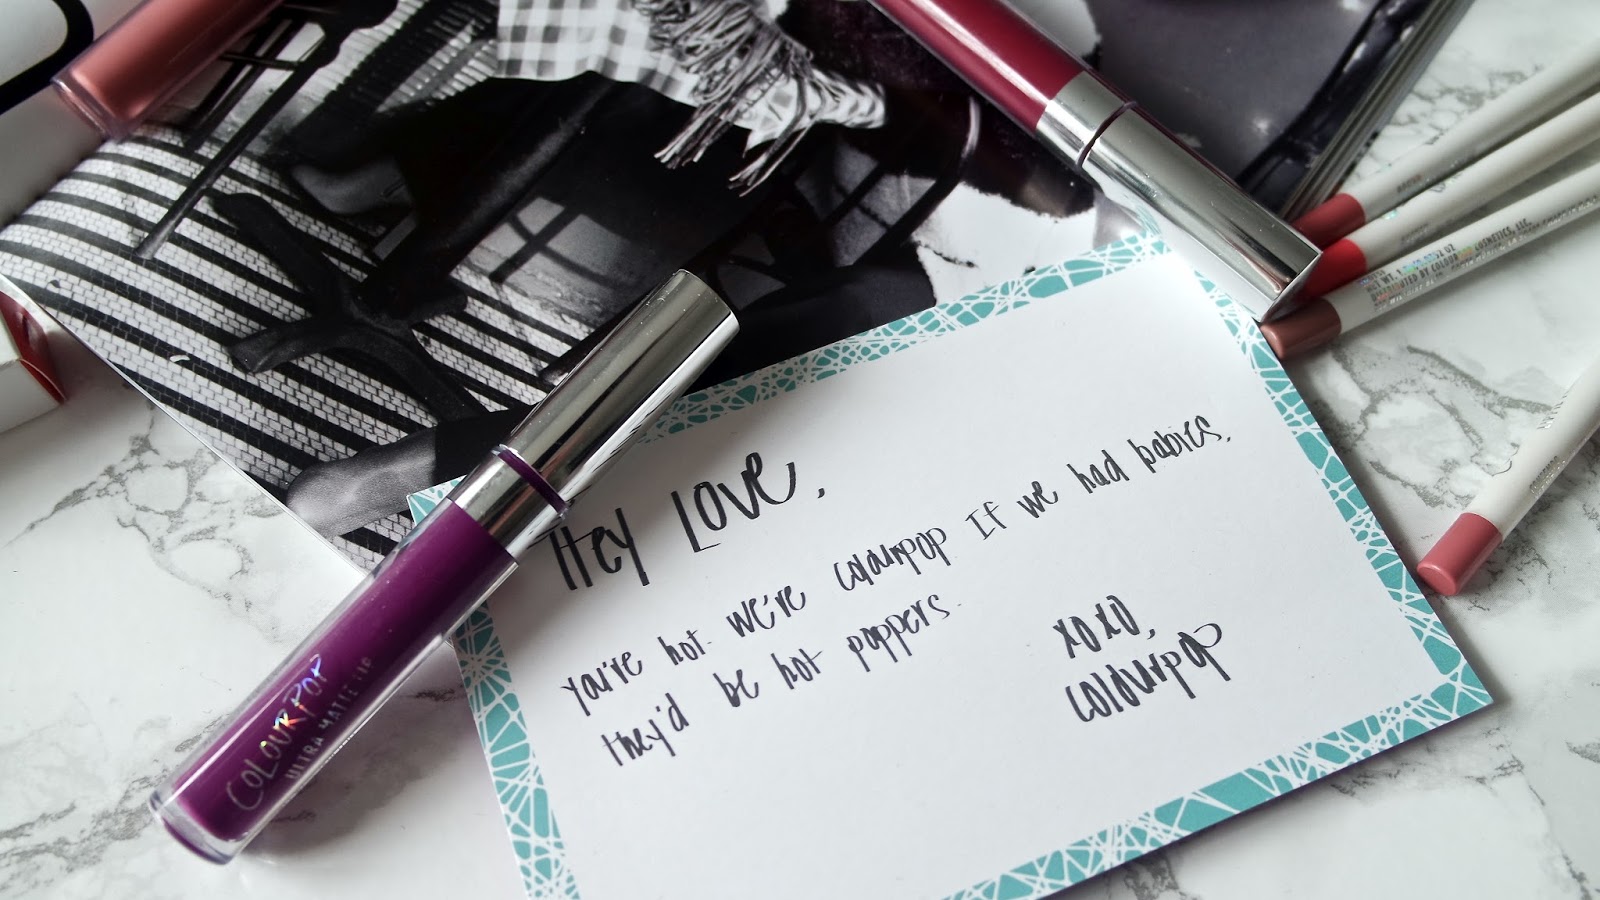 Hey Love,
You're hot. We're colourpop. If we had babies,
they'd be hot poppers.
xoxo,
colourpop
COLOURPOP
ULTRA MATTE LIP
COSMETICS, LLC.
DISTRIBUTED BY COLOUR